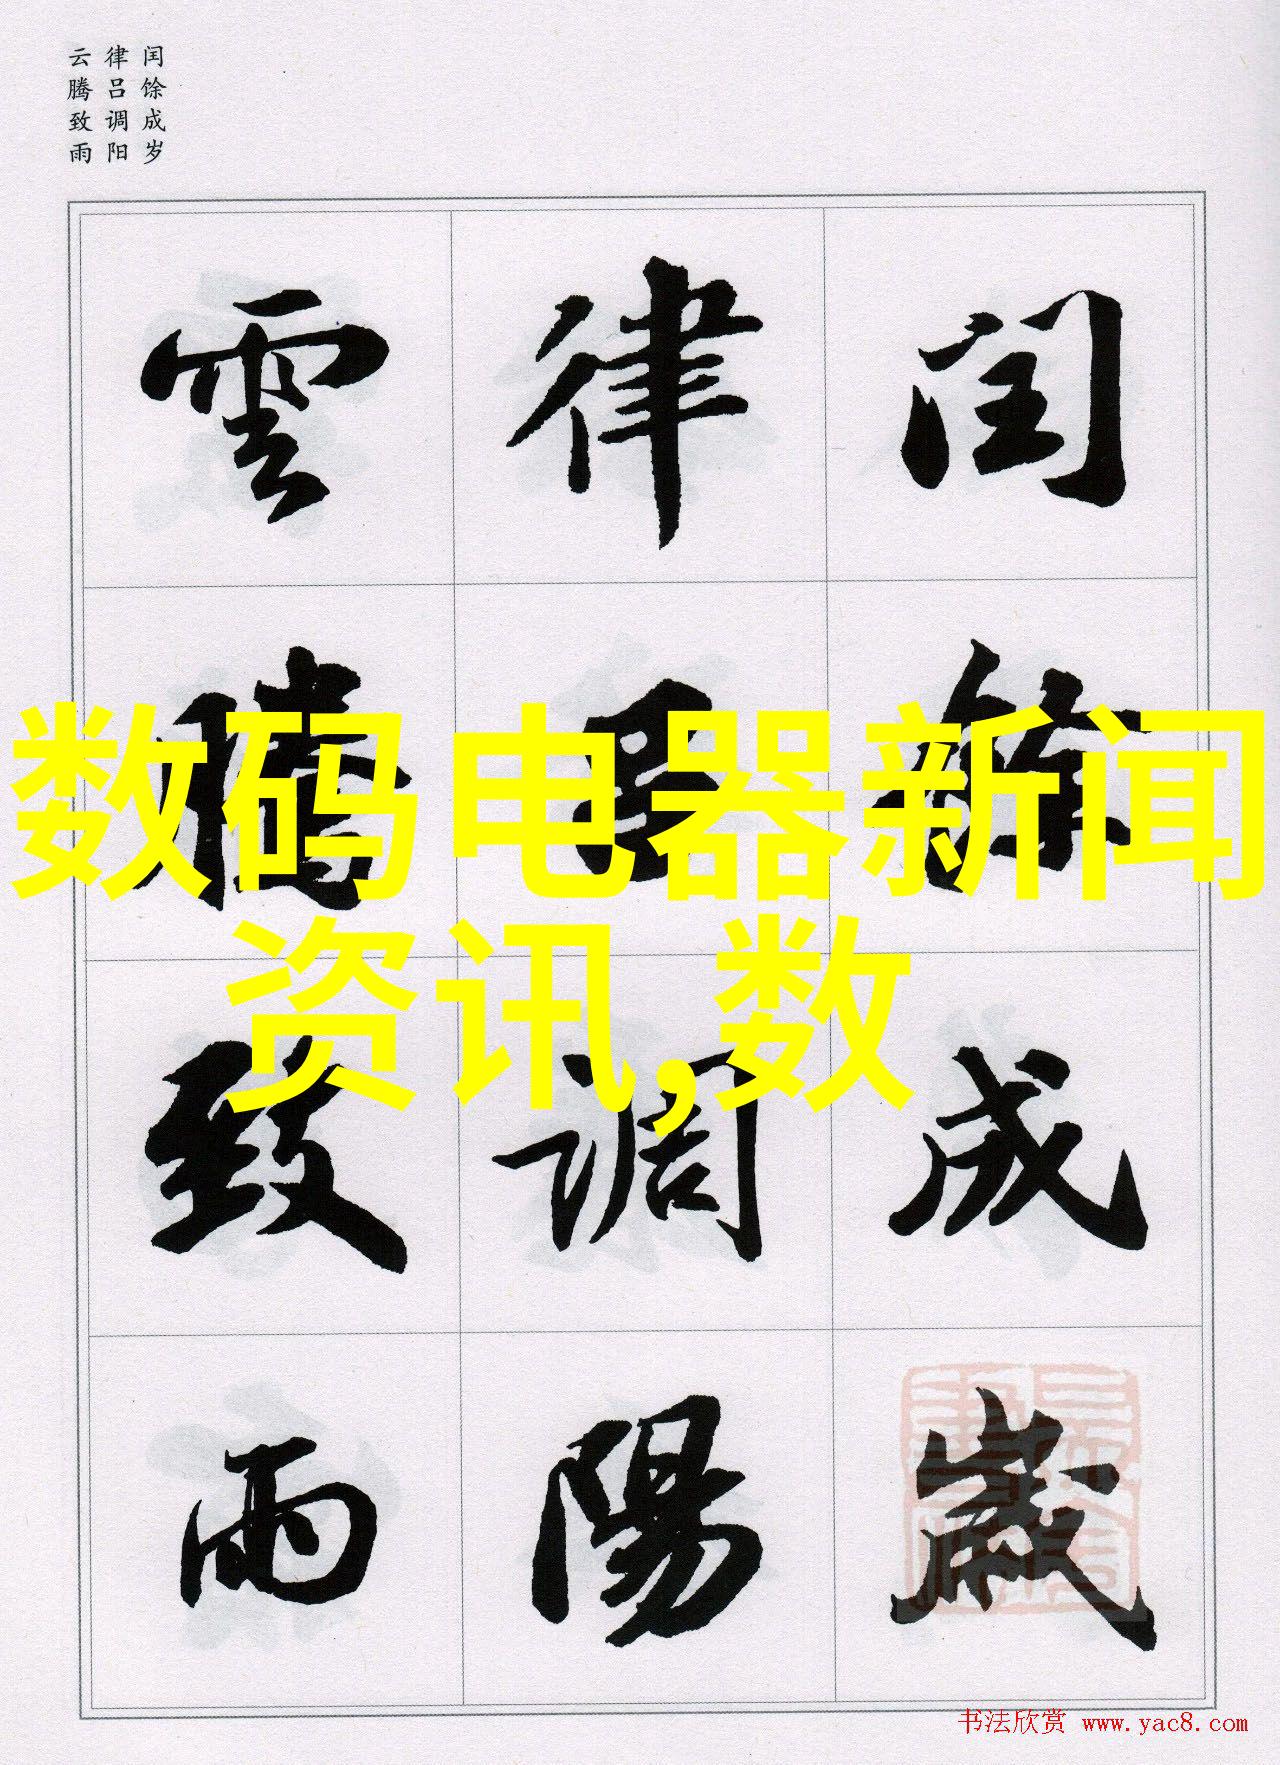 闰馀成岁
律吕调阳
云腾致雨
閏餘成歲
律吕調陽
雲騰致雨
数码电器新闻
资讯,数
书法欣赏 www.yac8.com